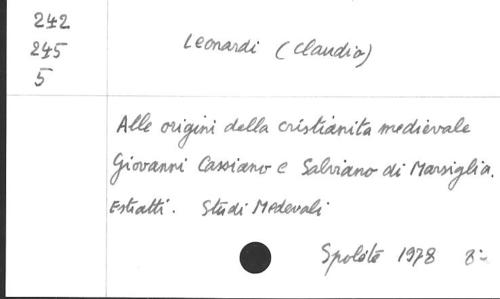 242
245
5
Leonardi (Claudio)
Alle origini della cristianita medievale
Giovanni Cassiano e Salviano di Marsiglia.
Estratti. Studi Medevali
Spoléte 1978 8:-